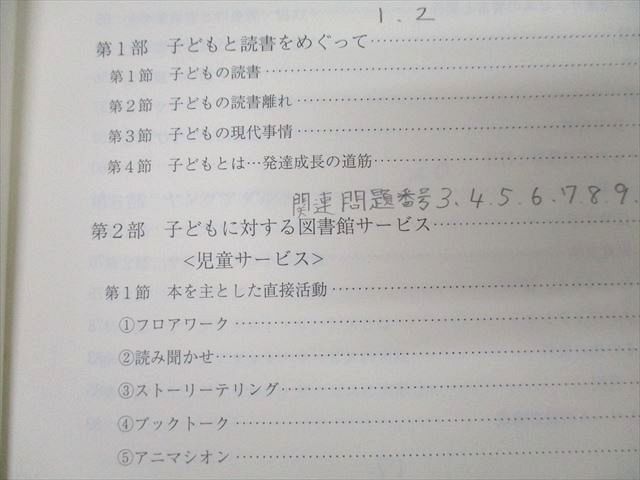 1.2
第1部 子どもと読書をめぐって
第1節 子どもの読書
第2節 子どもの読書離れ
第3節 子どもの現代事情
第4節 子どもとは…発達成長の道筋
関連問題番号3.4.5.6.7.8.9.
第2部 子どもに対する図書館サービス
<児童サービス>
第1節 本を主とした直接活動
①フロアワーク
②読み聞かせ
③ストーリーテリング
④ブックトーク
⑤アニマシオン